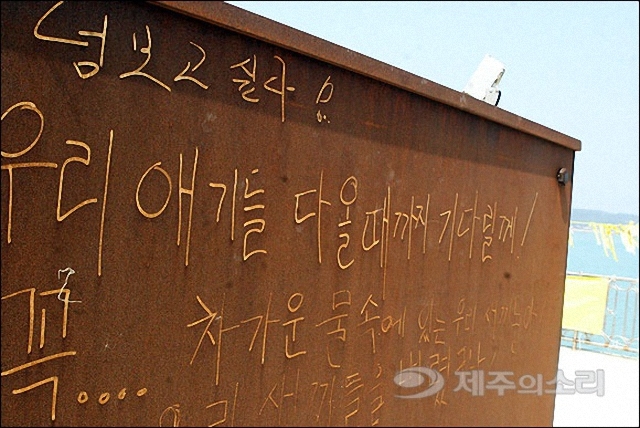 넘 보고 싶다 ㅠ
우리 애기들 다 올때까지 기다릴께!
꼭....
차가운 물속에 있는 우리 새끼들아
우리 새끼들을
제주의소리